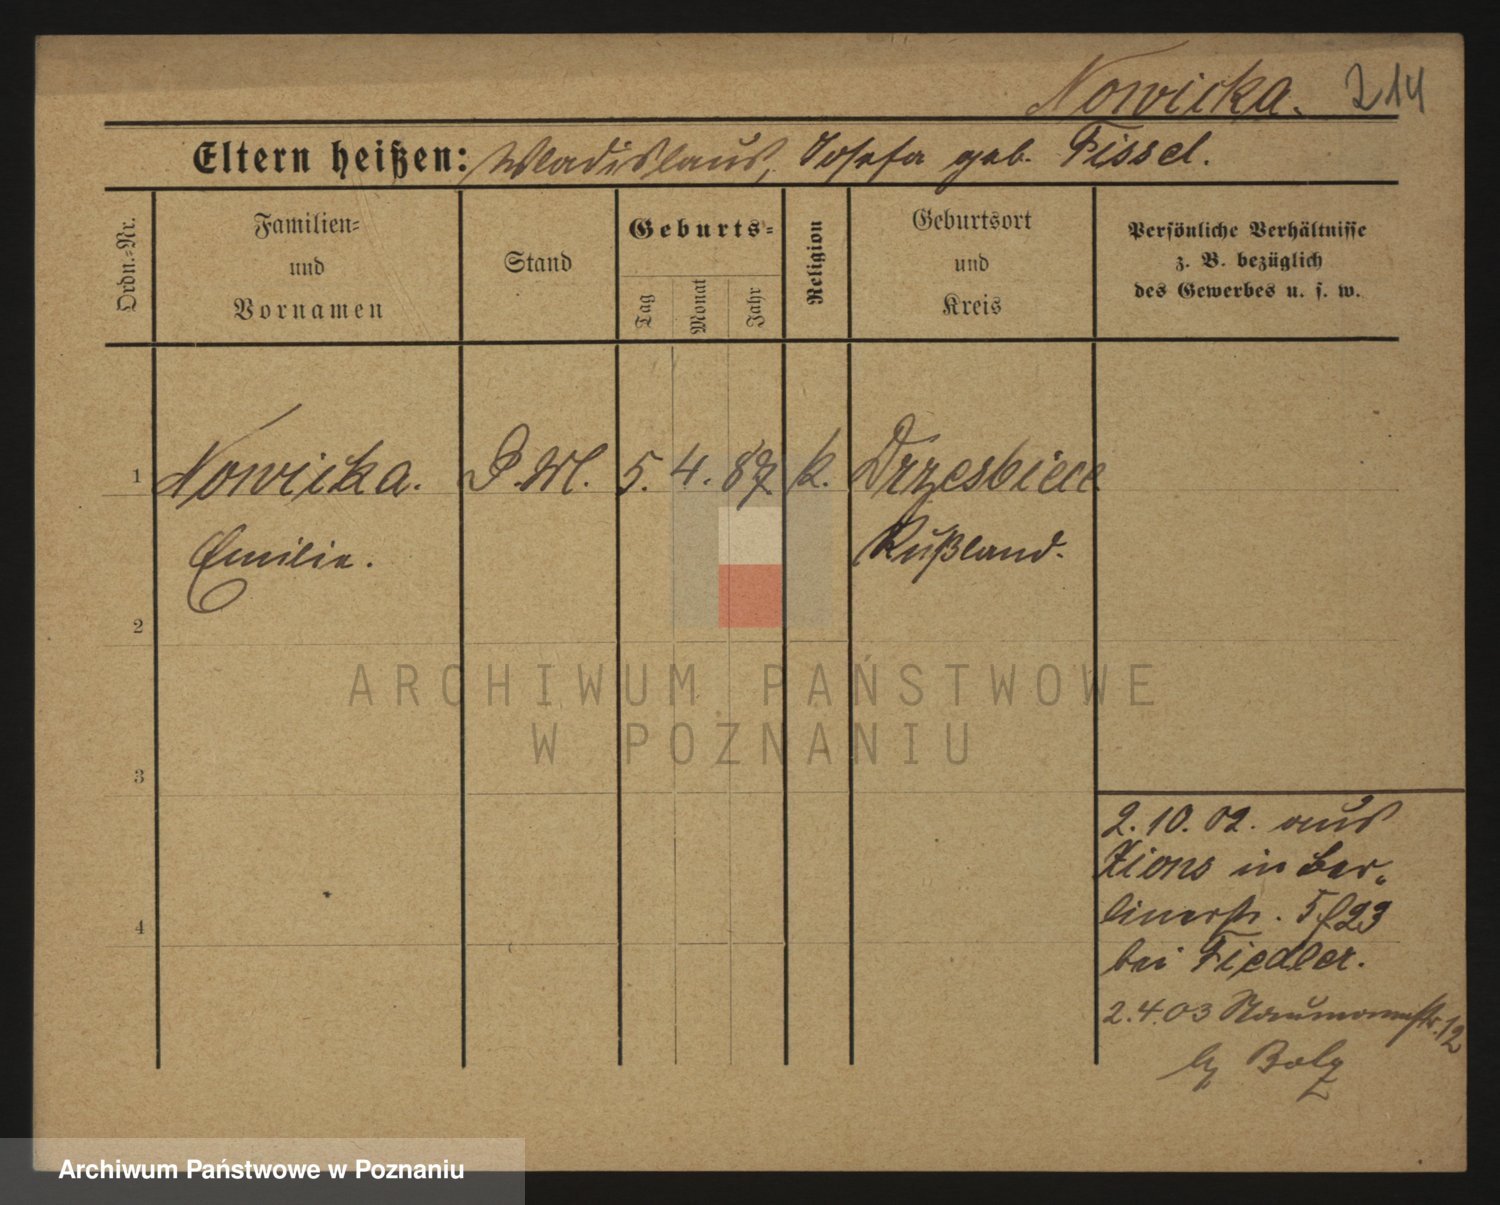 Nowicka. 214
Eltern heißen: Wladislaus, Josefa geb. Fissel.
Ordn.-Nr.
Familien-
und
Vornamen
Stand
Geburts-
Tag
Monat
Jahr
Religion
Geburtsort
und
Kreis
Persönliche Verhältnisse
z. B. bezüglich
des Gewerbes u. s. w.
1 Nowicka. D. M. 5. 4. 87 k. Drzesbiece
Emilie. Rußland.
2
ARCHIWUM PAŃSTWOWE
W POZNANIU
3
2. 10. 02. aus
Xions in Ber-
4
linerstr. 5 f 23
bei Fiedler.
2. 4. 03 Naumannstr. 12
by Bolz
Archiwum Państwowe w Poznaniu